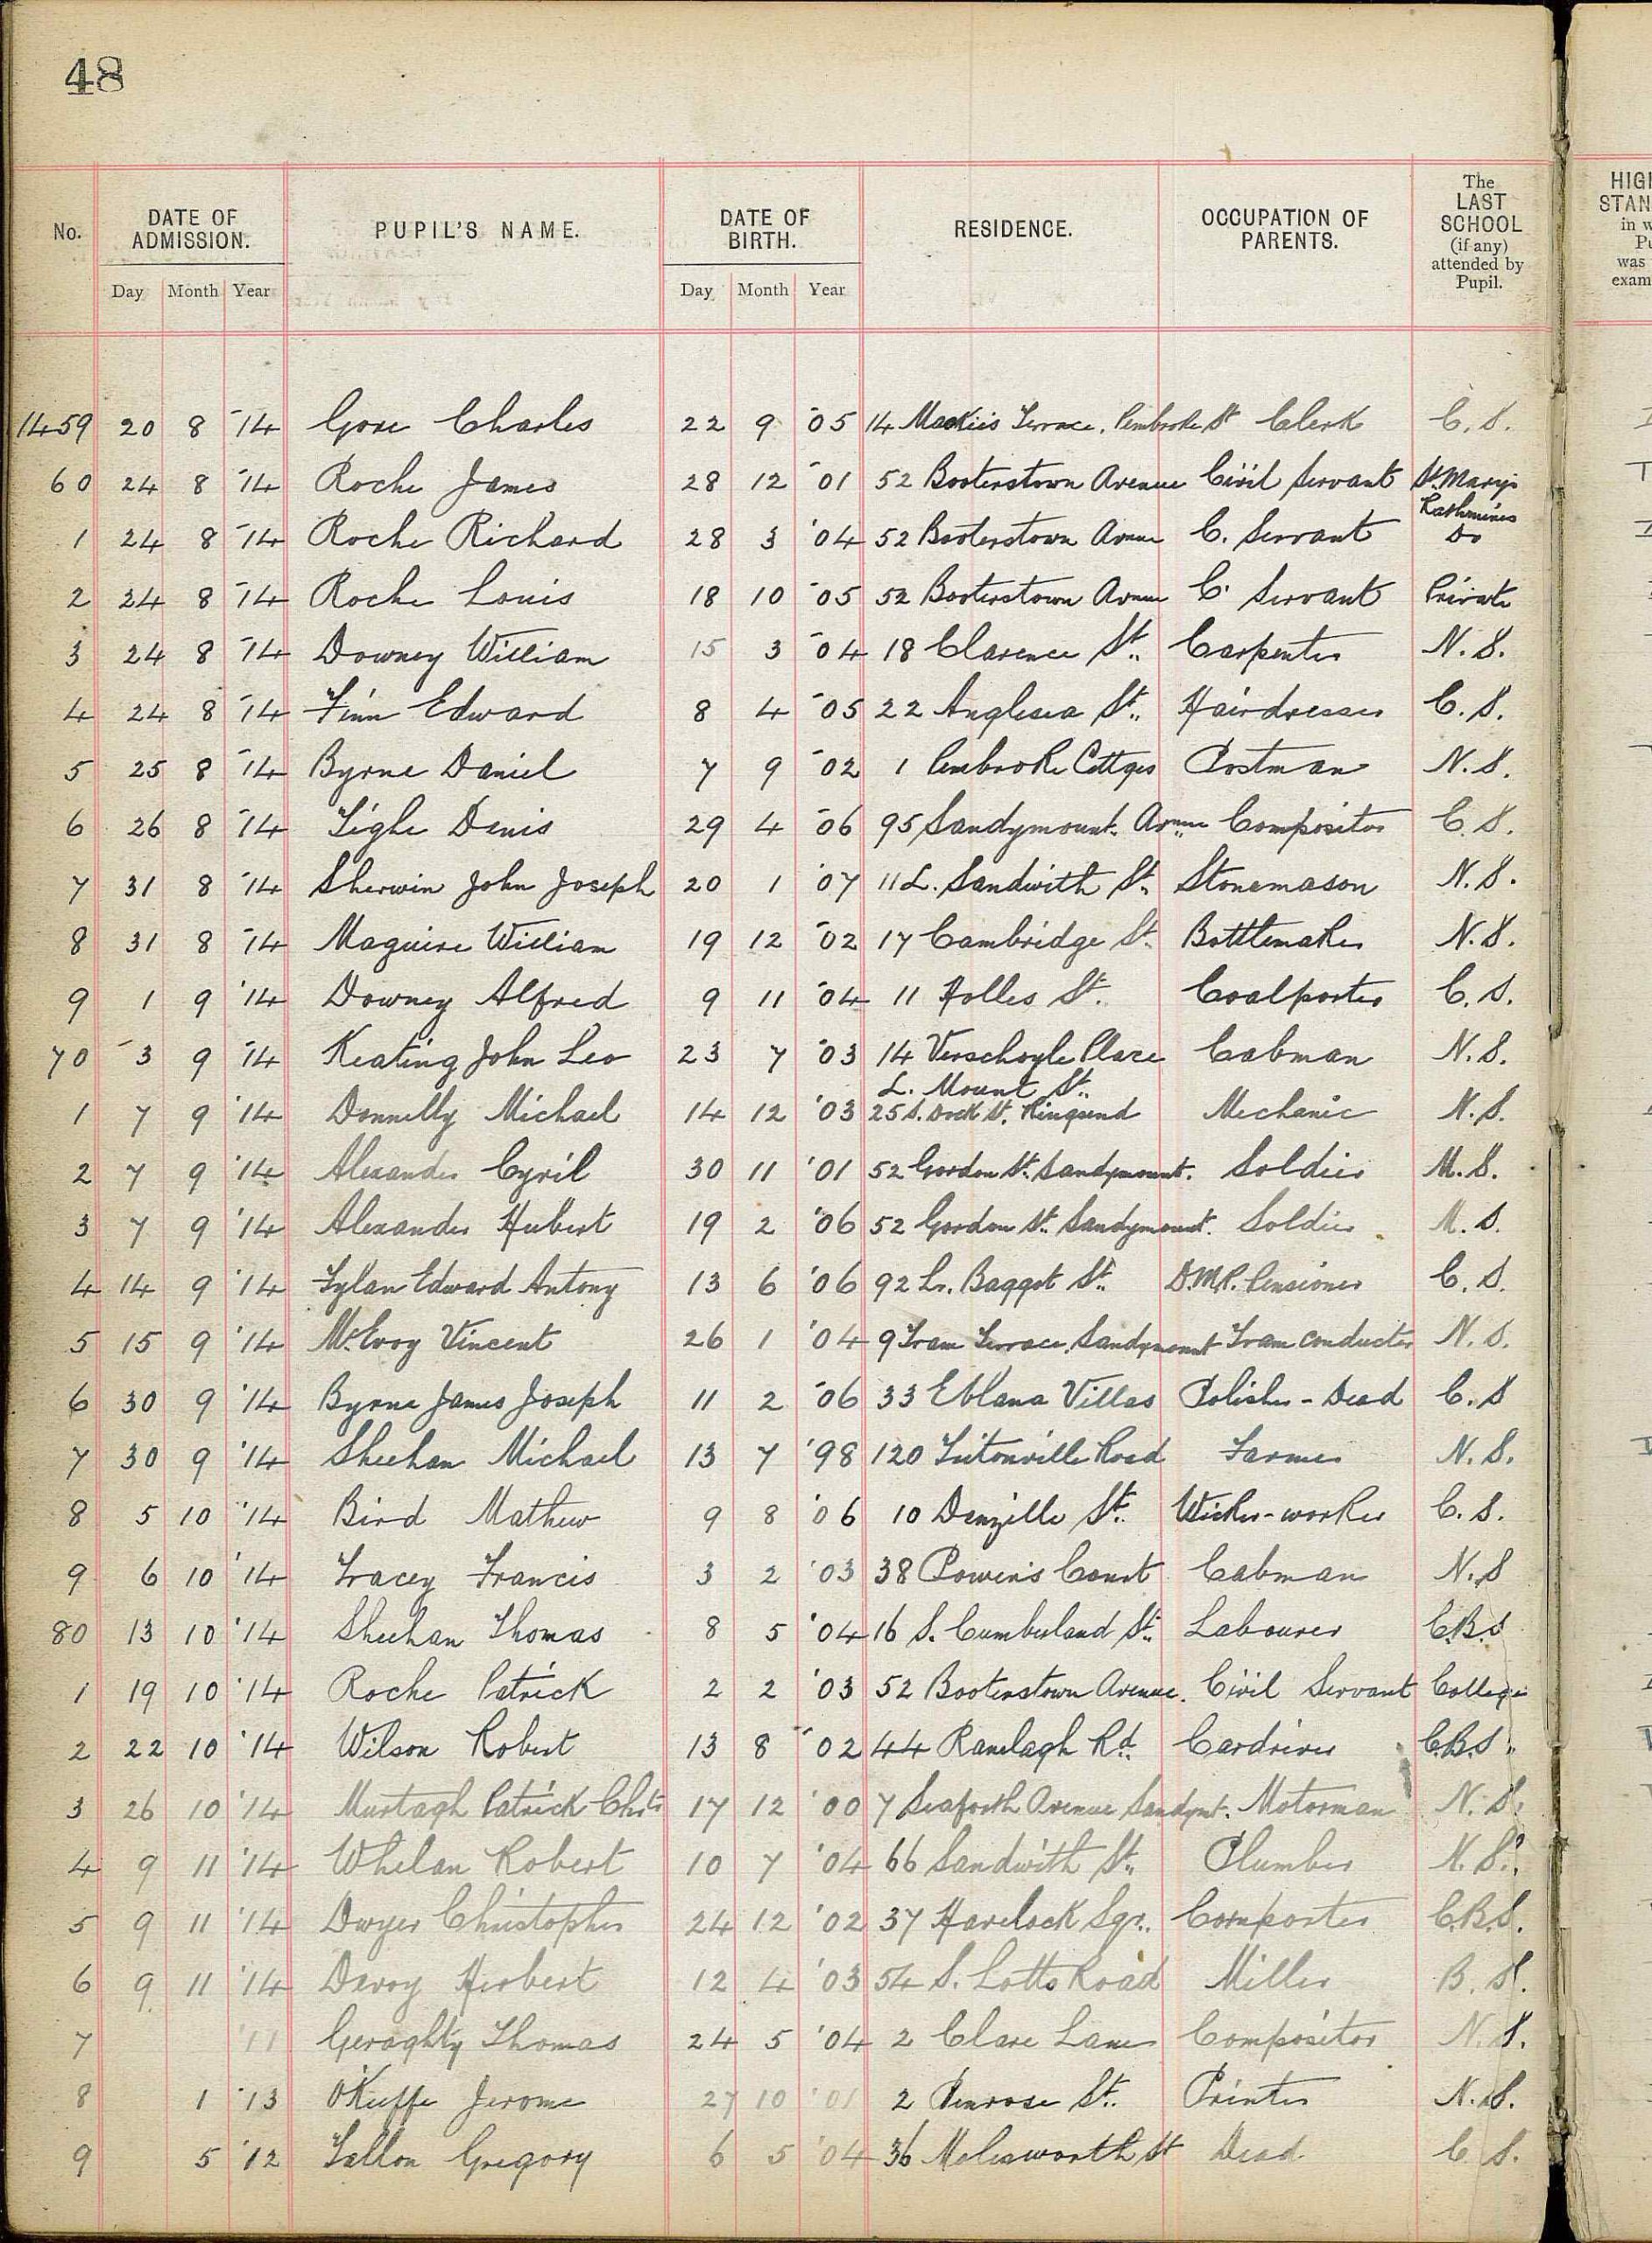 48
No. DATE OF ADMISSION. PUPIL'S NAME. DATE OF BIRTH. RESIDENCE. OCCUPATION OF PARENTS. The LAST SCHOOL (if any) attended by Pupil.
Day Month Year Day Month Year
1459 20 8 '14 Gore Charles 22 9 '05 14 Mackie's Terrace, Pembroke St Clerk C.S.
60 24 8 '14 Roche James 28 12 '01 52 Booterstown Avenue Civil Servant St. Mary's Rathmines
1 24 8 '14 Roche Richard 28 3 '04 52 Booterstown Avenue C. Servant Do
2 24 8 '14 Roche Louis 18 10 '05 52 Booterstown Avenue C. Servant Private
3 24 8 '14 Downey William 15 3 '04 18 Clarence St. Carpenter N.S.
4 24 8 '14 Finn Edward 8 4 '05 22 Anglesea St. Hairdresser C.S.
5 25 8 '14 Byrne Daniel 7 9 '02 1 Pembroke Cottges Postman N.S.
6 26 8 '14 Tighe Denis 29 4 '06 95 Sandymount Avnue Compositor C.S.
7 31 8 '14 Sherwin John Joseph 20 1 '07 11 L. Sandwith St. Stonemason N.S.
8 31 8 '14 Maguire William 19 12 '02 17 Cambridge St. Bottlemaker N.S.
9 1 9 '14 Downey Alfred 9 11 '04 11 Holles St. Coalporter C.S.
70 3 9 '14 Keating John Leo 23 7 '03 14 Verschoyle Place L. Mount St. Cabman N.S.
1 7 9 '14 Donnelly Michael 14 12 '03 25 S. Dock St. Ringsend Mechanic N.S.
2 7 9 '14 Alexander Cyril 30 11 '01 52 Gordon St. Sandymount. Soldier M.S.
3 7 9 '14 Alexander Hubert 19 2 '06 52 Gordon St. Sandymount. Soldier M.S.
4 14 9 '14 Fylan Edward Antony 13 6 '06 92 Lr. Baggot St. D.M.P. Pensioner C.S.
5 15 9 '14 McEvoy Vincent 26 1 '04 9 Tram Terrace, Sandymount Tram conductor N.S.
6 30 9 '14 Byrne James Joseph 11 2 '06 33 Eblana Villas Polisher - Dead C.S
7 30 9 '14 Sheehan Michael 13 7 '98 120 Tritonville Road Farmer N.S.
8 5 10 '14 Bird Mathew 9 8 '06 10 Denzille St. Wicker-worker C.S.
9 6 10 '14 Tracey Francis 3 2 '03 38 Power's Court Cabman N.S
80 13 10 '14 Sheehan Thomas 8 5 '04 16 S. Cumberland St. Labourer C.B.S
1 19 10 '14 Roche Patrick 2 2 '03 52 Booterstown Avenue. Civil Servant College
2 22 10 '14 Wilson Robert 13 8 '02 44 Ranelagh Rd. Cardriver C.B.S.
3 26 10 '14 Murtagh Patrick Chr 17 12 '00 7 Seaforth Avenue Sandymt. Motorman N.S.
4 9 11 '14 Whelan Robert 10 7 '04 66 Sandwith St. Plumber N.S.
5 9 11 '14 Dwyer Christopher 24 12 '02 37 Havelock Sqr. Cornporter C.B.S.
6 9 11 '14 Devoy Herbert 12 4 '03 54 S. Lotts Road Miller B.S.
7 '11 Geraghty Thomas 24 5 '04 2 Clare Lane Compositor N.S.
8 1 '13 O'Keffe Jerome 27 10 '01 2 Penrose St. Printer N.S.
9 5 '12 Tallon Gregory 6 5 '04 36 Molesworth St Dead C.S.